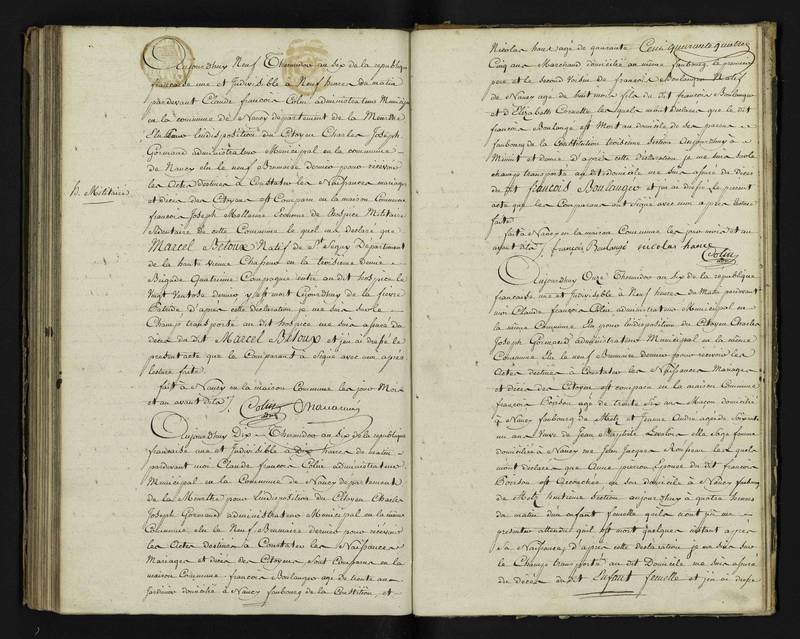 Aujourdhuy Neuf Thermidor an six de la republique
francaise une et Indivisible à Neuf heures du matin
pardevant Claude francois Colin administrateur Municipal
en la commune de Nancy departement de la Meurthe
Elu pour lindisposition du Citoyen Charles Joseph
Gormand administrateur Municipal en la commune
de Nancy elu le neuf Brumaire dernier pour recevoir
les Actes destinés à Constater les Naissances mariages
et décès des Citoyens est Comparu en la maison Commune
h. Militaire
francois Joseph econome de lhospice Militaire
Sedentaire en cette Commune le quel ma declaré que
Marcel Betoux Natif de Departement
de la haute vienne Chasseur en la troisieme demie
Brigade Quatrieme Compagnie entré au dit hospice le
Vingt Ventose dernier y est mort Cejourdhuy de la fievre
Putride d'après cette declaration je me suis sur le
Champ transporté au dit hospice me suis assuré du
décès du dit Marcel Betoux et j'en ai dressé le
présent acte que le Comparant a Signé avec moi après
lecture faite.
fait à Nancy en la maison Commune les jour Mois
et an avant dits /. Colin
Aujourdhuy Dix Thermidor an six de la republique
francaise une et Indivisible à Dix heures du matin
pardevant moi Claude francois Colin administrateur
Municipal en la Commune de Nancy departement
de la Meurthe pour lindisposition du Citoyen Charles
Joseph Gormand administrateur Municipal en la même
Commune, elu le Neuf Brumaire dernier pour recevoir
les Actes destinés à Constater les Naissances
Mariages et décès des Citoyens, sont Comparus en la
maison Commune francois Boulanger agé de trente ans
Jardinier domicilié à Nancy faubourg de la Constitution, et
Cent quarante quatre
Nicolas haure agé de quarante
Cinq ans Marchand domicilié au même faubourg, le premier
pere et le second Voisin de francois Boulanger Natif
de Nancy agé de huit mois fils du dit francois Boulanger
et d'Elizabeth les quels mont declaré que le dit
francois Boulanger est Mort au domicile de ses parens
faubourg de la Constitution troisieme Section Cejourdhuy à
Minuit et demie d'après cette declaration je me suis sur le
champ transporté au dit domicile me suis assuré du décès
du dit francois Boulanger et j'en ai dressé le present
acte que les Comparans ont Signé avec moi après lecture
faite
fait à Nancy en la maison Commune les jour mois et an
avant dits /. francois Boulangé nicolas haure
Colin
Aujourdhuy Onze Thermidor an six de la republique
francaise une et Indivisible à Neuf heures du Matin pardevant
moi Claude francois Colin administrateur Municipal en
la même Commune En pour lindisposition du Citoyen Charles
Joseph Gormand administrateur Municipal en la même
Commune Elu le neuf Brumaire dernier pour recevoir les
Actes destinés à Constater les Naissances Mariages
et décès des Citoyens est comparu en la maison Commune
francois Poirson agé de trente Six ans Macon domicilié
à Nancy faubourg de Metz et Jeanne André agée de soixante
un ans Veuve de Jean Baptiste elle Sage femme
domiciliée à Nancy rue Jean Jacques Rousseau les quels
mont declaré que Anne pierron Epouse du dit francois
Poirson est accouchée en son domicile à Nancy faubourg
de Metz huitieme Section aujourdhuy à quatre heures
du matin dun enfant femelle quils n'ont pu me
presenter attendu quil est mort quelques instant après
Sa Naissance, d'après cette declaration je me suis sur
le Champ transporté au dit Domicile me suis assuré
du décès du dit Enfant femelle et j'en ai dressé